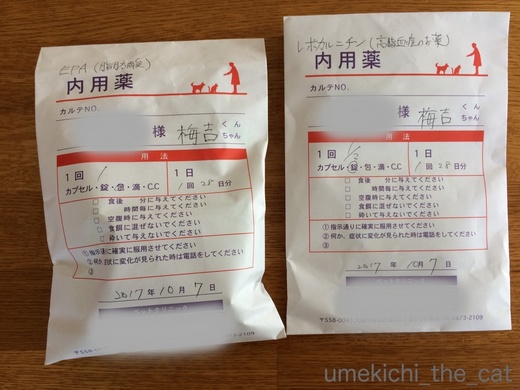 EPA
内用薬
カルテNO.
様 梅吉 くん ちゃん
用法
1回 1 1日
カプセル・錠・包・滴・C.C 1回 28日分
□ 食後 分に与えてください
□ 時間毎に与えてください
□ 空腹時に与えてください
□ 食餌に混ぜないでください
□ 砕いて与えないでください
①指示通りに確実に服用させてください
②何か、症状に変化が見られた時は電話をしてください
③
2017年10月7日
〒558-00
レボカルニチン(高脂血症のお薬)
内用薬
カルテNO.
様 梅吉 くん ちゃん
用法
1回 1/2 1日
カプセル・錠・包・滴・C.C 1回 28日分
□ 食後 分に与えてください
□ 時間毎に与えてください
□ 空腹時に与えてください
□ 食餌に混ぜないでください
□ 砕いて与えないでください
①指示通りに確実に服用させてください
②何か、症状に変化が見られた時は電話をしてください
③
2017年10月7日
〒558-00
73-2109
umekichi_the_cat